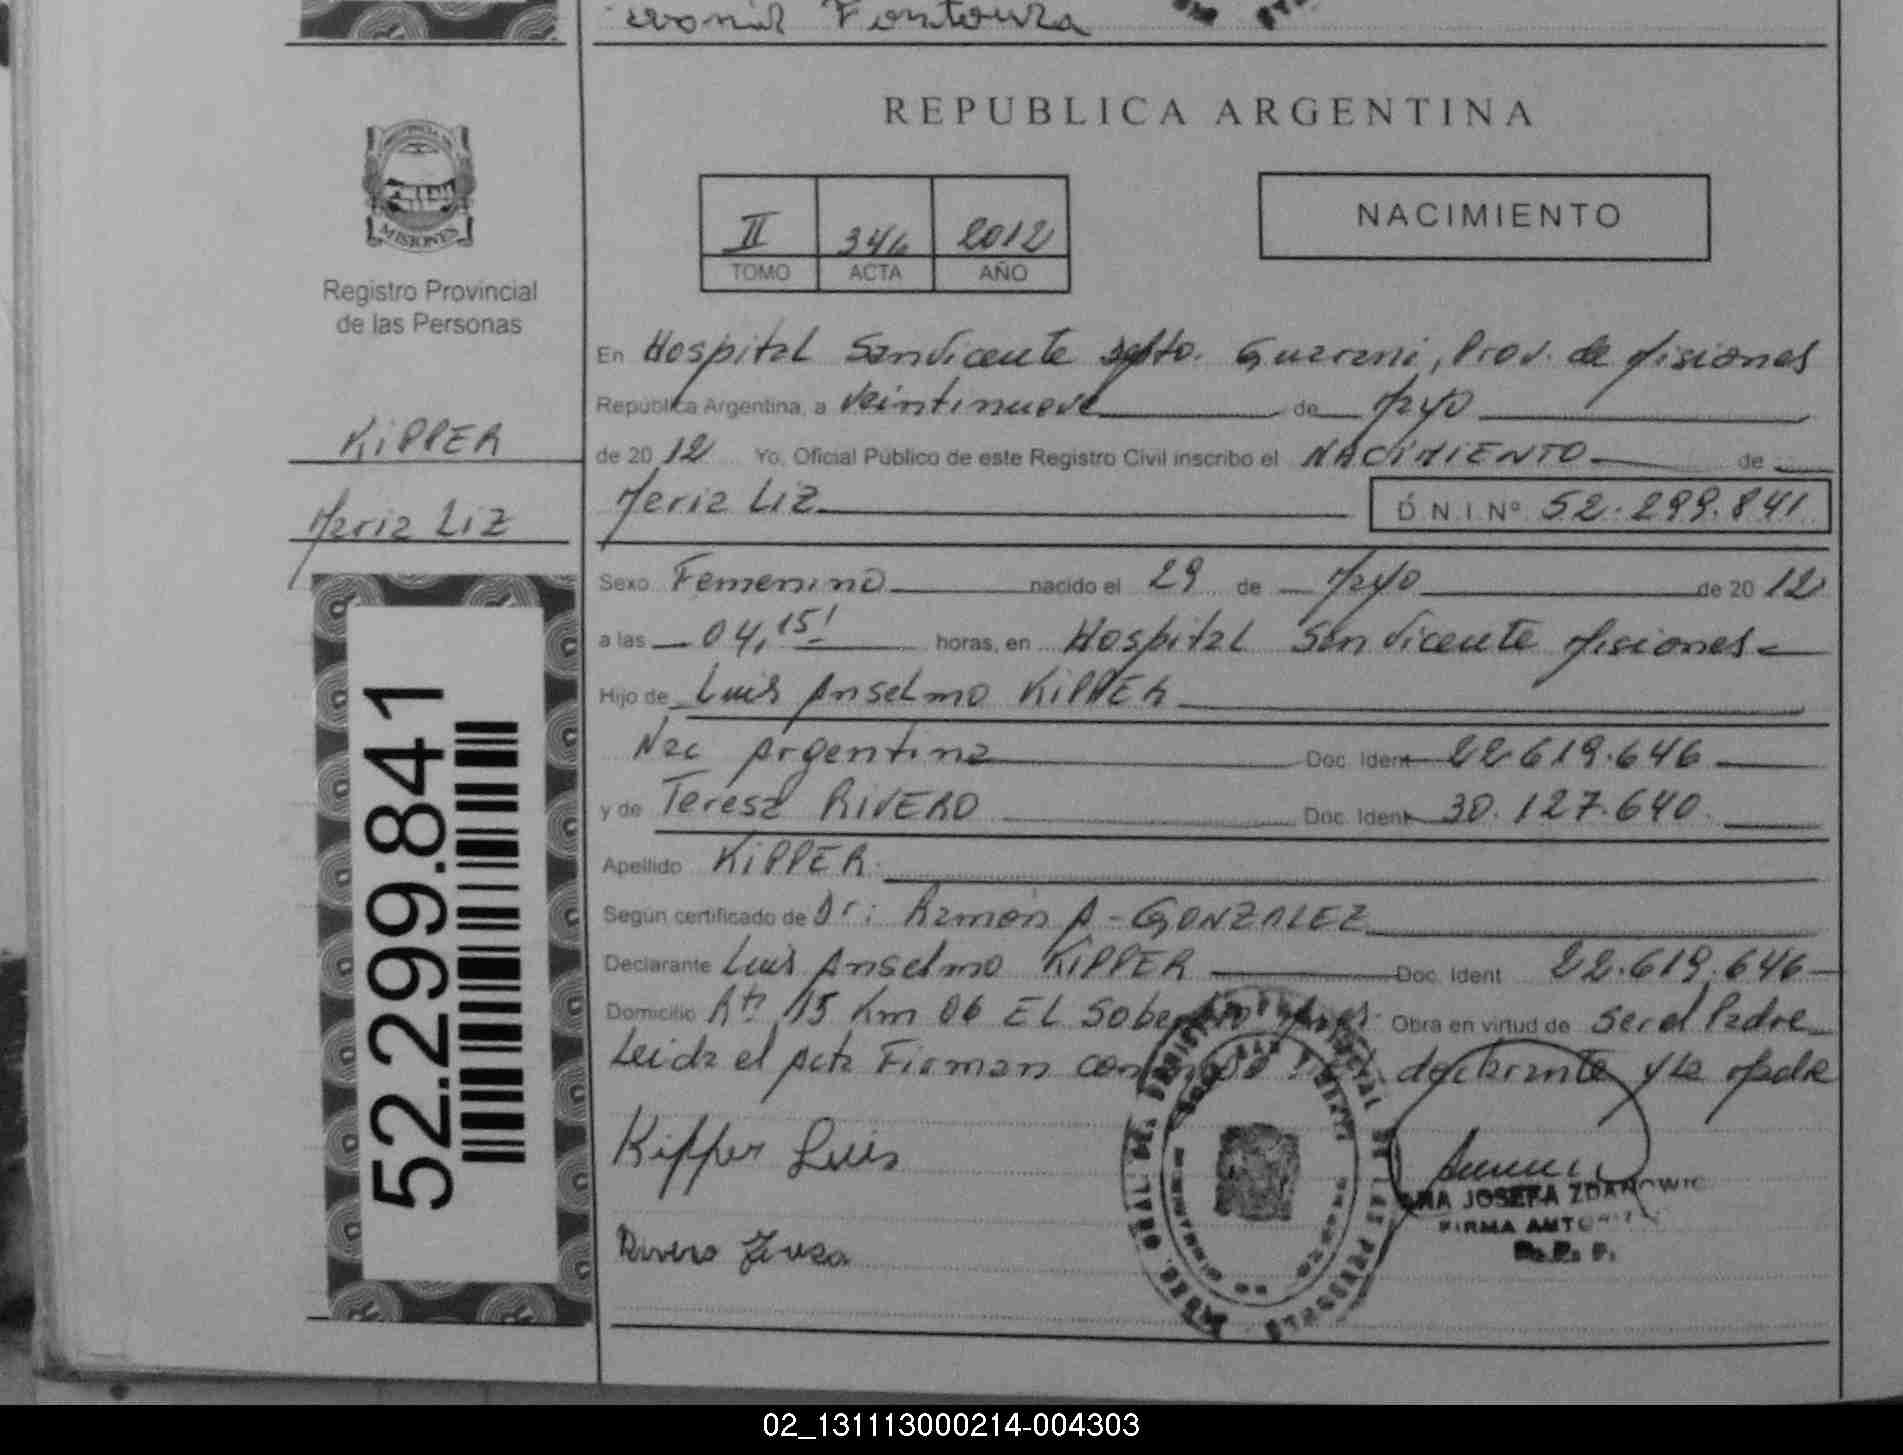 Fontoura
REPUBLICA ARGENTINA
MISIONES
Registro Provincial
de las Personas
KIPPER
Maria Liz
52.299.841
II 346 2012
TOMO ACTA AÑO
NACIMIENTO
En Hospital San Vicente dpto. Guarani, Prov. de Misiones
República Argentina, a Veintinueve de Mayo
de 2012 Yo, Oficial Público de este Registro Civil inscribo el NACIMIENTO de
Maria Liz D.N.I.Nº 52.299.841
Sexo Femenino nacido el 29 de Mayo de 2012
a las 04,15' horas, en Hospital San Vicente Misiones
Hijo de Luis Anselmo KIPPER
Nac Argentina Doc. Ident 22.619.646
y de Teresa RIVERO Doc. Ident 30.127.640
Apellido KIPPER
Según certificado de Dr: Ramon A - GONZALEZ
Declarante Luis Anselmo KIPPER Doc. Ident 22.619.646
Domicilio Rta 15 Km 06 EL Soberbio Obra en virtud de Ser el Padre
Leida el Acta Firman declarante y La Madre
Kipper Luis
JOSEFA ZDANOWIC
FIRMA
Rivero Teresa
02_131113000214-004303